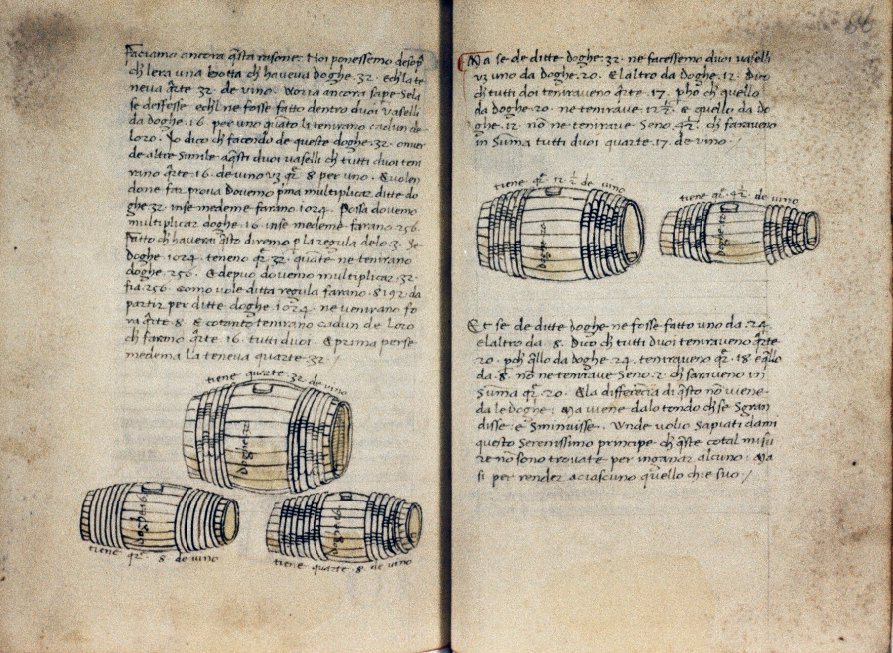 Faciamo ancora q̄sta rasone: Noi ponessemo
ch̄ lera una botta ch̄ haveva doghe. 32. ech̄ la te
neva q̄rte 32. de vino. Voria ancora sape Sela
se desfesse. ech̄l ne fosse fatto dentro duoi Vaselli
da doghe. 16. per uno quāto la tenirano cadun de
loro. Io dico ch̄ facendo de queste doghe. 32.
de altre Simile aq̄sti duoi vaselli ch̄ tutti duoi ten
rano q̄rte 16. de vino vz qr̄. 8 per uno. E volen
done far prova Dovemo p̄ma multiplicar ditte do
ghe 32 in se medeme farano 1024. Possa dovemo
multiplicar doghe. 16. in se medeme farano. 256.
Fatto ch̄ haverai q̄sto diremo p̄ la regula de lo 3. Se
doghe. 1024. teneno qr̄. 32. quāte ne tenirano
doghe. 256. E depuo dovemo multiplicar. 32.
fia. 256. como vole ditta regula farano. 8192. da
partir per ditte doghe. 1024. ne venirano fo
ra q̄rte. 8. E cotanto tenirano cadun de loro
ch̄ farano q̄rte 16. tutti duoi. E prima per se
medema la teneva quarte. 32. /
tiene quarte 32. de vino
Doghe 32
Doghe 16
tiene qr̄. 8. de vino
Doghe 16.
tiene quarte. 8. de vino
86
Ma se de ditte doghe. 32. ne facessemo duoi vaselli
vz uno da doghe. 20. E laltro da doghe. 12. Dico
ch̄ tutti doi teniraveno q̄rte. 17. ph̄o ch̄ quello
da doghe. 20. ne tenirave 12½. e quello da do
ghe. 12. nō ne tenirave Seno. 4½. ch̄ faraveno
in Suma tutti duoi quarte. 17. de vino. /
tiene qr̄. 12 ½ de vino
doghe. 20.
tiene qr̄. 4½. de vino
Doghe. 12.
Et se de ditte doghe ne fosse fatto uno da. 24.
E laltro da. 8. Dico ch̄ tutti duoi teniraveno q̄rte
20. pch̄ q̄llo da doghe. 24. teniraveno qr̄. 18 e q̄llo
da. 8. nō ne tenirave Seno. 2. ch̄ faraveno in
Suma qr̄. 20. E la differēcia di q̄sto nō viene
da le doghe: Ma viene dalo tondo ch̄ se Sgran
disse: e Sminuisse. Unde volio Sapiati dami
questo Serenissimo principe ch̄ q̄ste cotal misu
re nō sono trovate per inganar alcuno: Ma
si per render a ciascuno quello ch̄ e suo. /